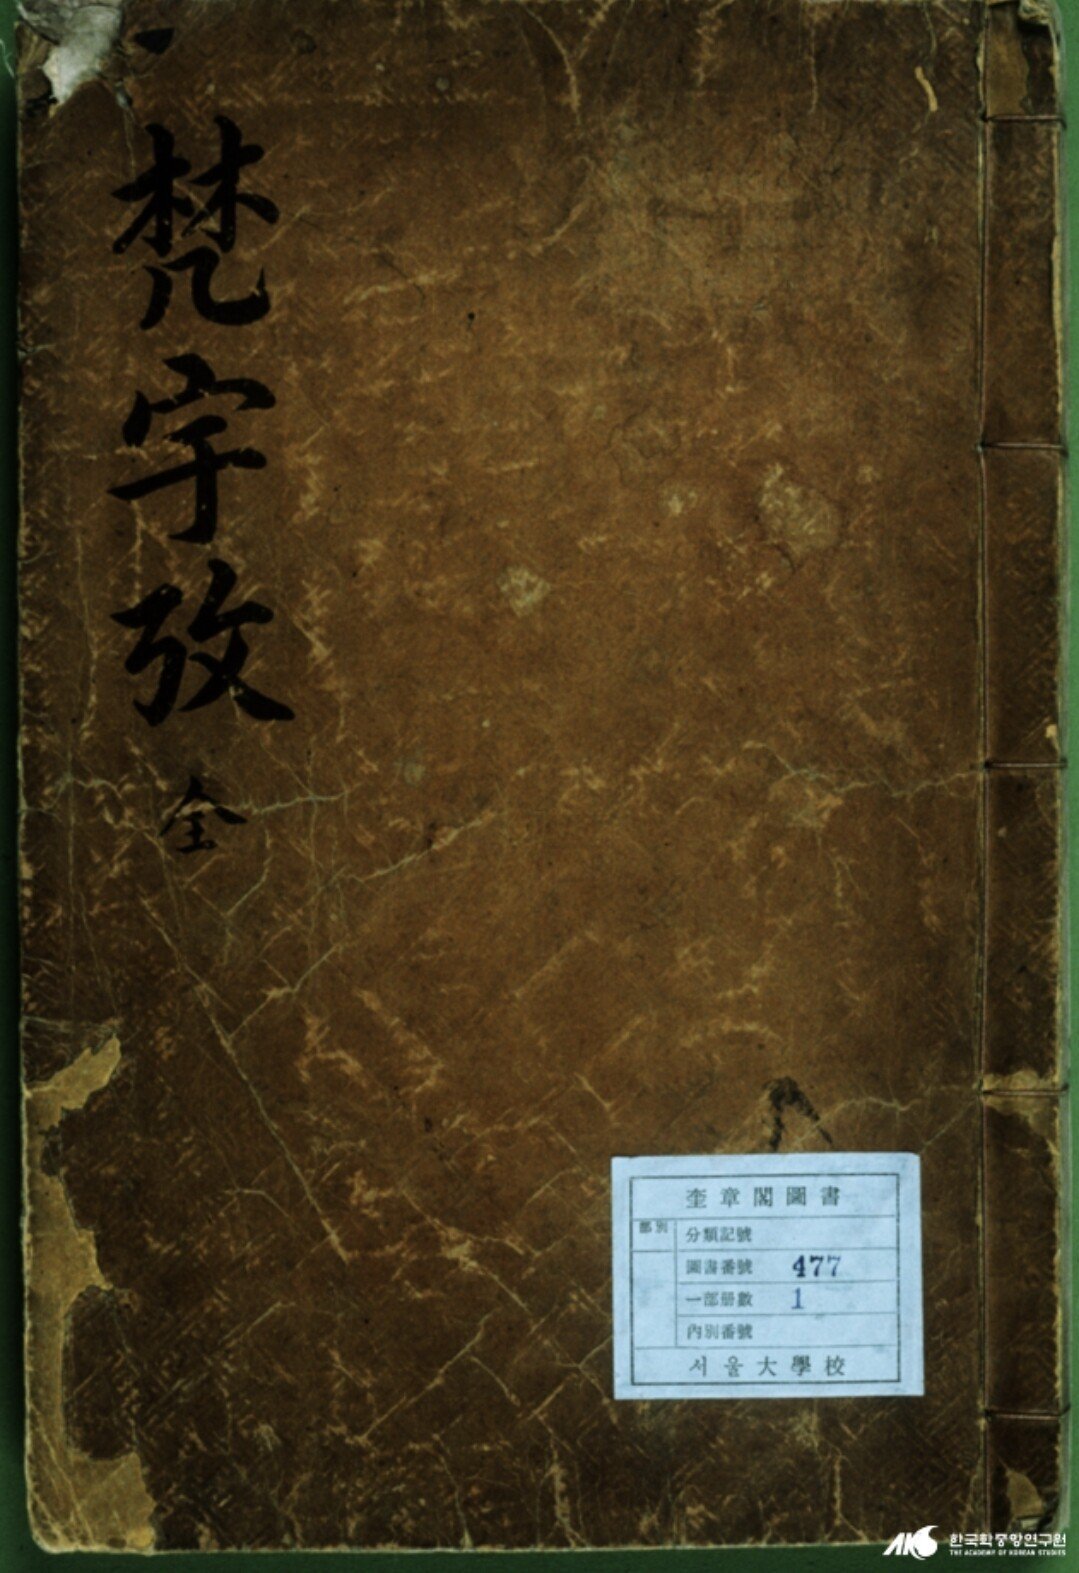 梵字攷
全
奎章閣圖書
部別
分類記號
圖書番號 477
一部冊數 1
內別番號
서울大學校
AKS 한국학중앙연구원
THE ACADEMY OF KOREAN STUDIES